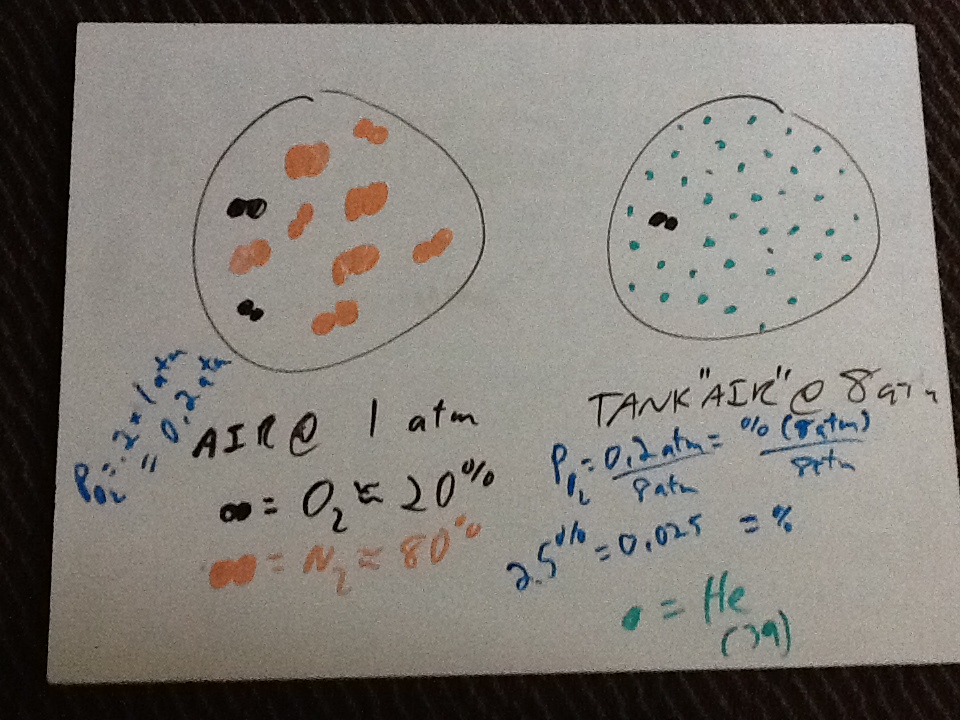 P_O₂ = .2 × 1 atm
" 0.2 atm
AIR @ 1 atm
= O₂ ≈ 20%
= N₂ ≈ 80%
TANK "AIR" @ 8 atm
P_O₂ = 0.2 atm / 8 atm = % (8 atm) / 8 atm
2.5% = 0.025 = %
= He
(39)